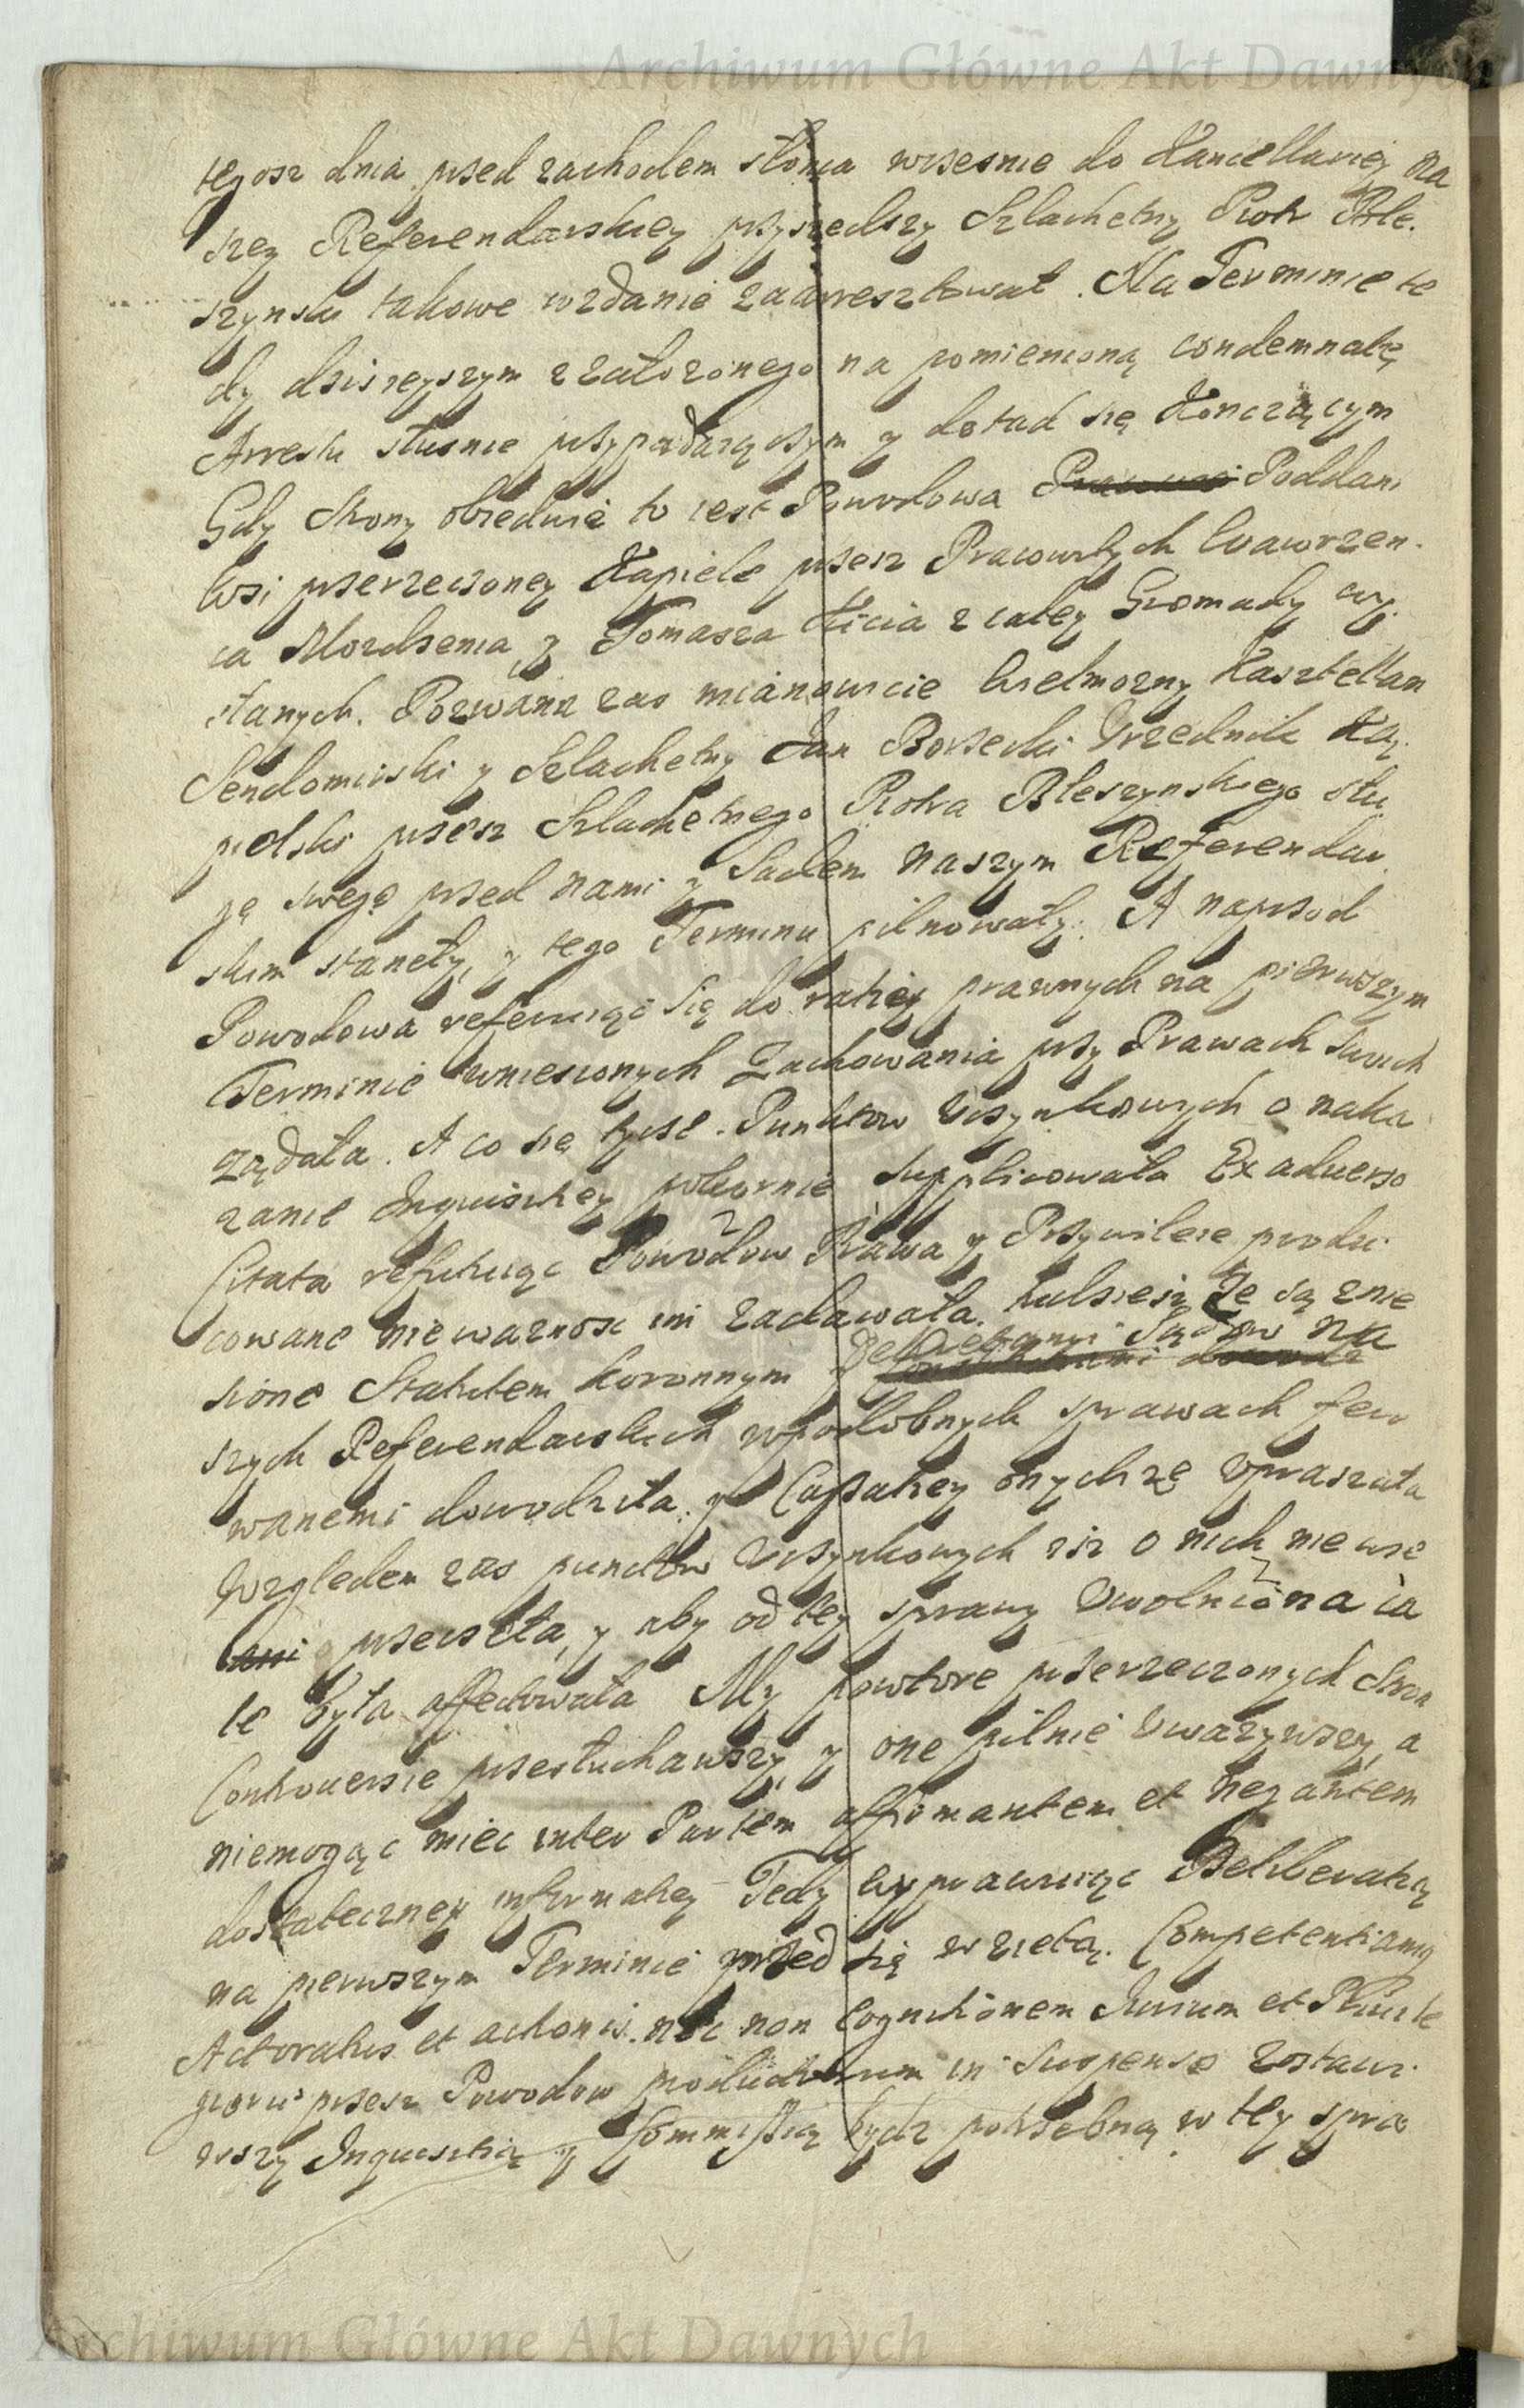 Archiwum Główne Akt Dawnych
tegosz dnia przed zachodem słonca wczesnie do Kancellariej na
szey Referendarskiey przyszedszy Szlachetny Piotr Ble.
szynski takowe wzdanie zaaresztował. Na Terminie te
dy dzisieyszym z założonego na pomienioną condemnatę
Arrestu słusnie przypadaiącym y dotad się Konczącym
Gdy Strony obiedwie to iest Powodowa Poddani
Wsi przerzeczoney Kapiele przez Pracowitych Wawrzen.
ca Mozdzenia y Tomasza Kicia z całey Gromady wy.
słanych. Pozwana zas mianowicie Wielmozny Kasztellan
Sendomirski y Szlachetny Jan Borzecki Urzednik Ka.
pielski przez Szlachetnego Piotra Bleszynskiego słu
gę swego przed nami y Sadem naszym Referendar.
skim staneły, y tego Terminu pilnowały. A naprzod
Powodowa referuiąc się do ratiey prawnych na pierwszym
Terminie wniesionych Zachowania przy Prawach swoich
ządała. A co się tycze Punktow Uczynkowych o naka
zanie Inquisitiey pokornie supplicowała Ex adverso
Citata refutuiąc Powodow Prawa y Przywileie produ.
cowane niewaznosc im zadawała. tudziesz Ze są znie
sione Statutem Koronnym y Dekretami Sądow na
szych Referendarskich w podobnych sprawach fero
wanemi dowodziła. y Cassatiey onychze upraszała
Względem zas punctow Uczynkowych isz o nich niewie
przeczyła, y aby od tey sprawy Uwolniona ca
le była affectowała My powtore przerzeczonych Stron
Controuersie przesłuchawszy, y one pilnie Uwazywszy, a
niemogąc miec inter Partem affirmantem et negantem
dostateczney informatiey Tedy Wyprawuiąc Deliberatią
na pierwszym Terminie przed się wzietą. Competentiamą
Actoratus et actionis. nec non Cognitionem Jurium et Priuile
giorū przesz Powodow productorum in Suspenso zostawi.
wszy Inquisitią y Commissią bydz potrzebną w tey spra
Archiwum Główne Akt Dawnych